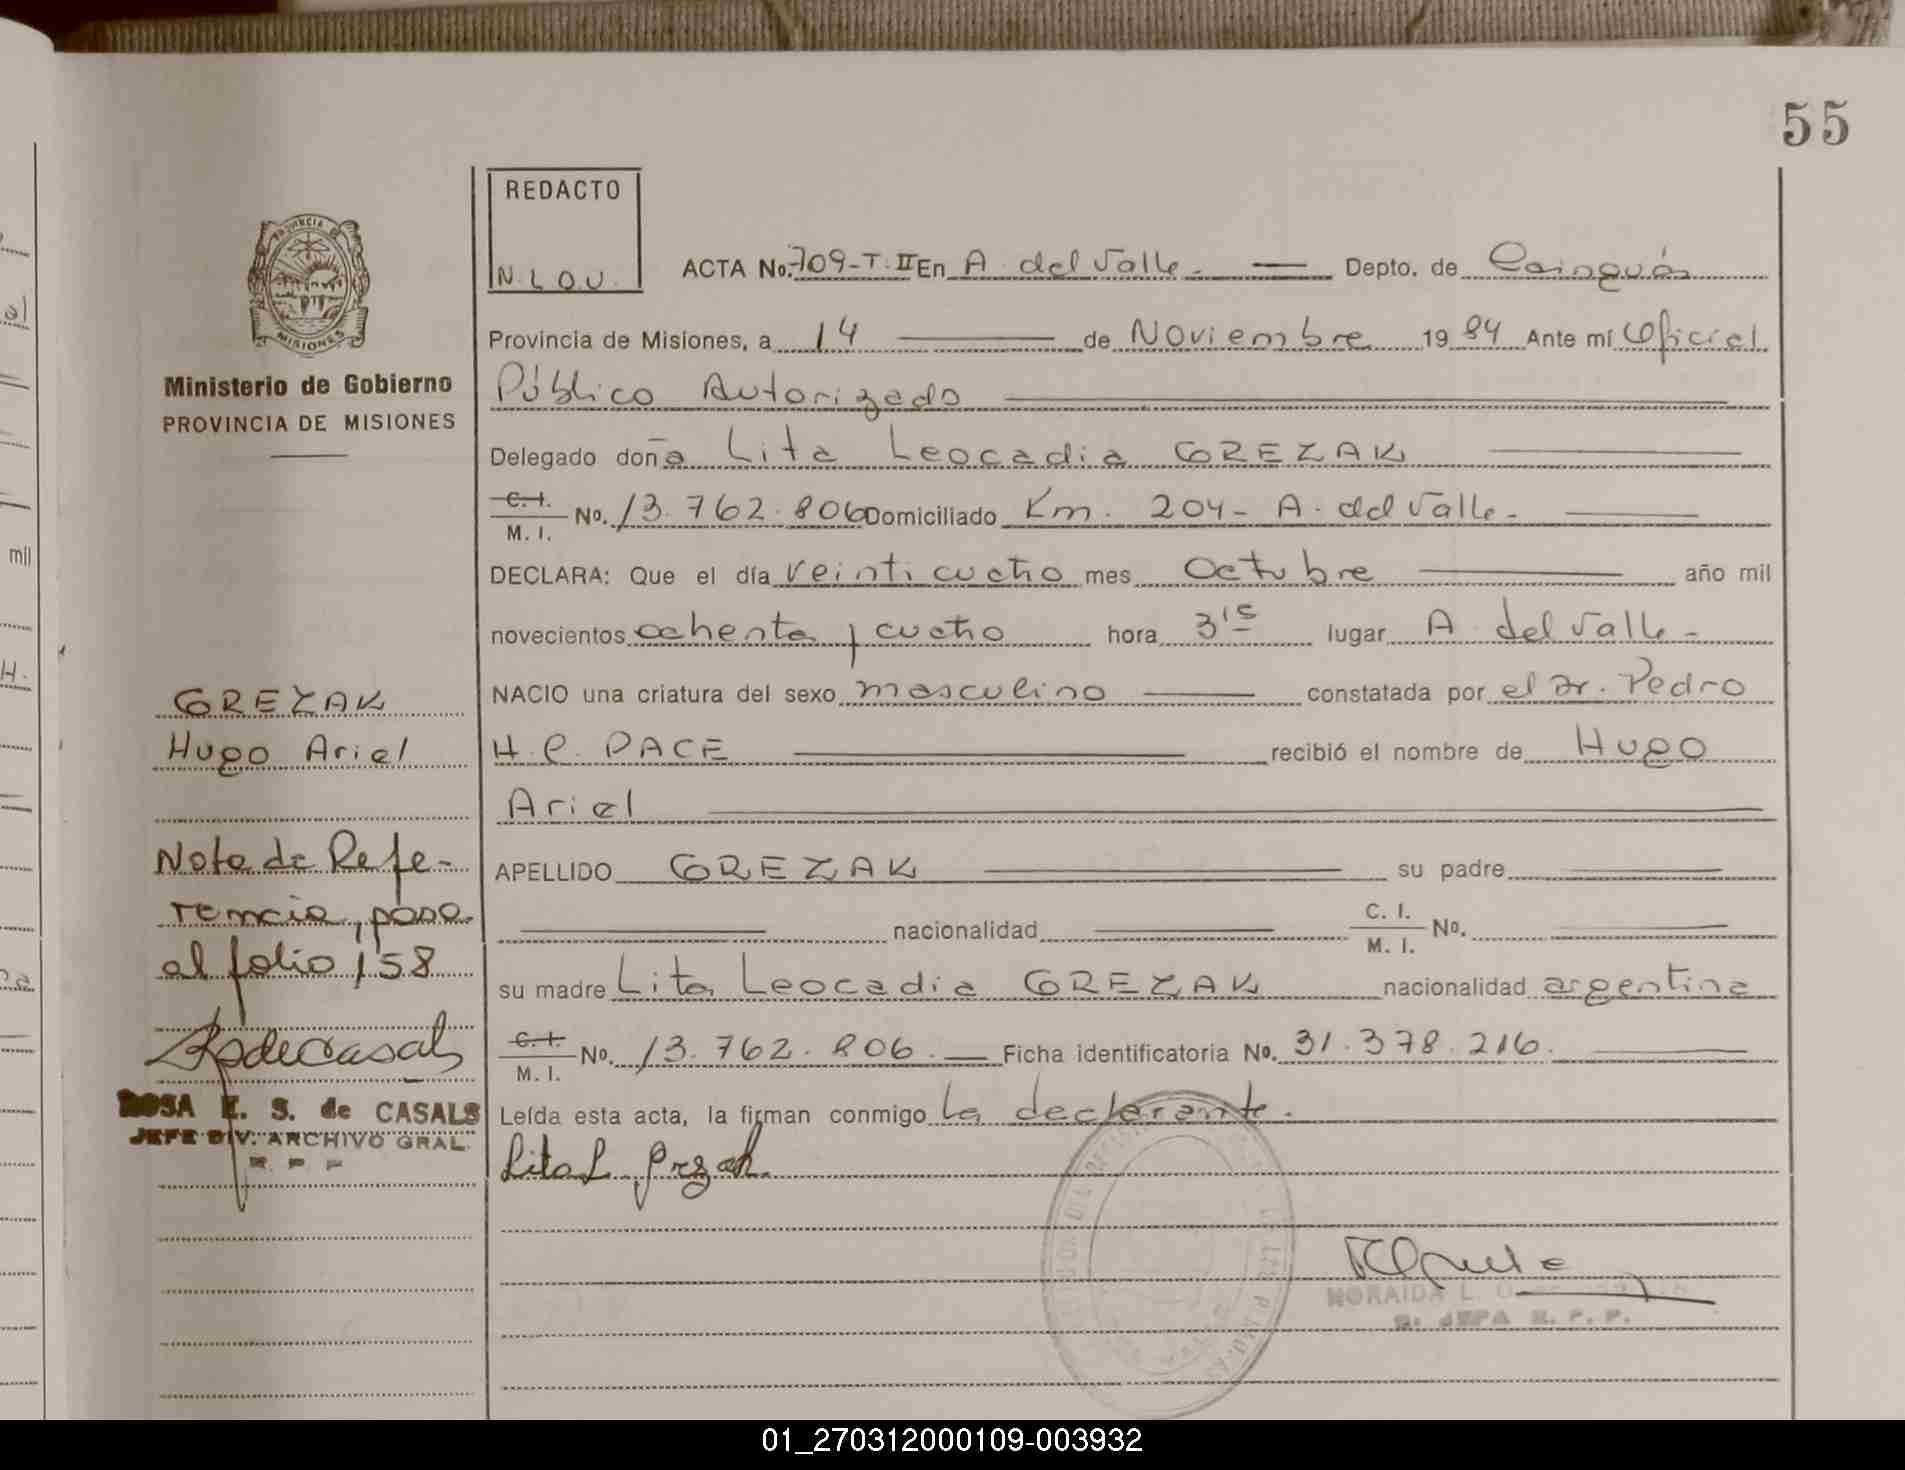 55
REDACTO
N.L.O.U.
ACTA No. 709-T.II En A. del Valle.- Depto. de Cainguás
Provincia de Misiones, a 14 de Noviembre 1984 Ante mí Oficial
Público Autorizado
Delegado doña Lita Leocadia GREZAK
C. I.
M. I. No. 13.762.806 Domiciliado Km. 204- A. del Valle.-
DECLARA: Que el día veinticuatro mes Octubre año mil
novecientos ochenta y cuatro hora 3'15 lugar A. del Valle.-
NACIO una criatura del sexo masculino constatada por el Dr. Pedro
H. C. PACE recibió el nombre de Hugo
Ariel
APELLIDO GREZAK su padre
nacionalidad C. I.
M. I. No.
su madre Lita Leocadia GREZAK nacionalidad argentina
C. I.
M. I. No. 13.762.806.- Ficha identificatoria No. 31.378.216.
Leída esta acta, la firman conmigo la declarante.-
Lita L. Grezak.
NORAIDA L.
JEFA R. P. P.
PROVINCIA DE
MISIONES
Ministerio de Gobierno
PROVINCIA DE MISIONES
GREZAK
Hugo Ariel
Nota de Refe-
rencia, pasa
al folio 158
Rodecasals
ROSA E. S. de CASALS
JEFE DIV. ARCHIVO GRAL.
R. P. P.
mil
01_270312000109-003932